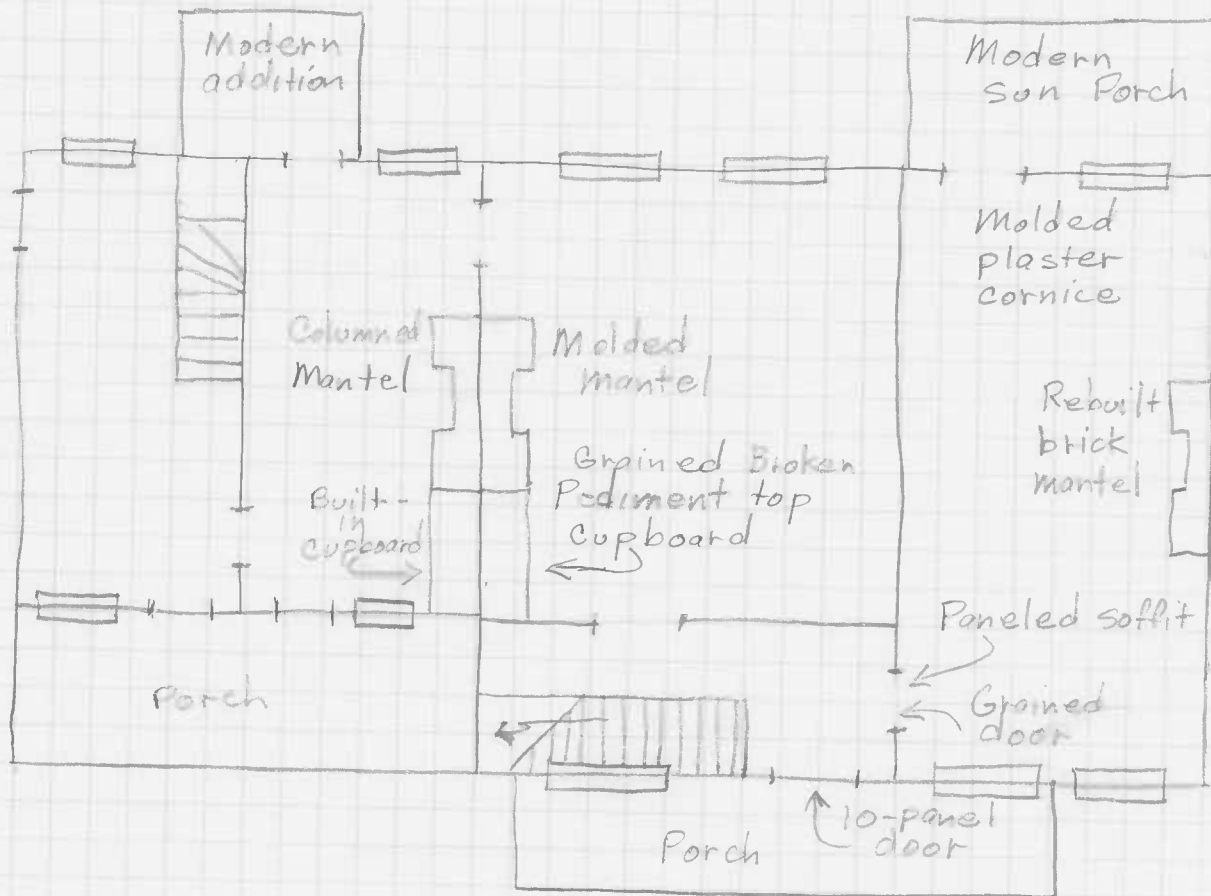 Modern
addition
Modern
Sun Porch
Molded
plaster
cornice
Columned
Mantel
Molded
mantel
Rebuilt
brick
mantel
Grained Broken
Pediment top
Cupboard
Built-
in
Cupboard
Paneled soffit
Grained
door
Porch
10-panel
door
Porch